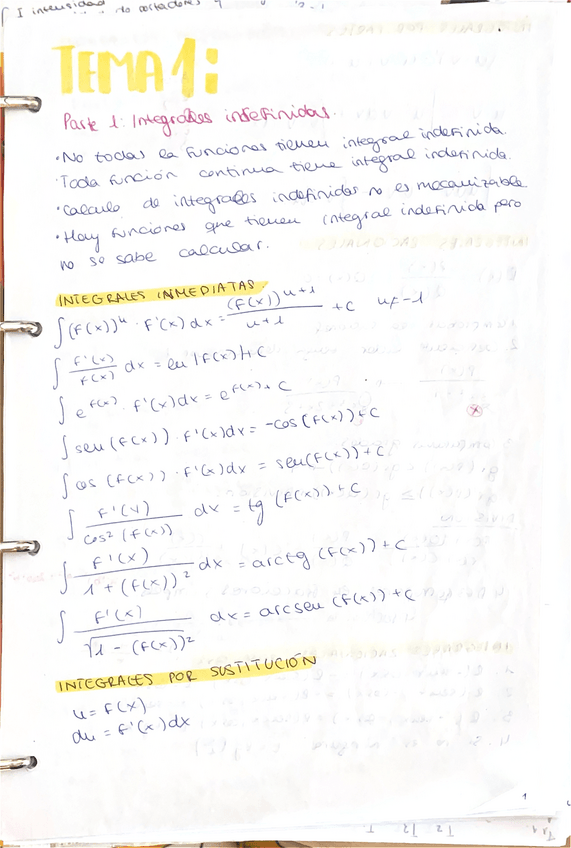 I intensidad
TEMA 1:
Parte 1: Integrales indefinidas.
· No todas la funciones tienen integral indefinida.
· Toda función continua tiene integral indefinida.
· Calculo de integrales indefinidas no es mecanizable
· Hay funciones que tienen integral indefinida pero
no se sabe calcular.
INTEGRALES INMEDIATAS.
∫(f(x))ⁿ · f'(x) dx = (f(x))ⁿ⁺¹ / n+1 + C n≠-1
∫ f'(x) / f(x) dx = ln |f(x)| + C
∫ e^f(x) · f'(x) dx = e^f(x) + C
∫ sen (f(x)) · f'(x) dx = -cos (f(x)) + C
∫ cos (f(x)) · f'(x) dx = sen(f(x)) + C
∫ f'(x) / cos² (f(x)) dx = tg (f(x)) + C
∫ f'(x) / 1 + (f(x))² dx = arctg (f(x)) + C
∫ f'(x) / √1 - (f(x))² dx = arcsen (f(x)) + C
INTEGRALES POR SUSTITUCIÓN
u = f(x)
du = f'(x) dx
1